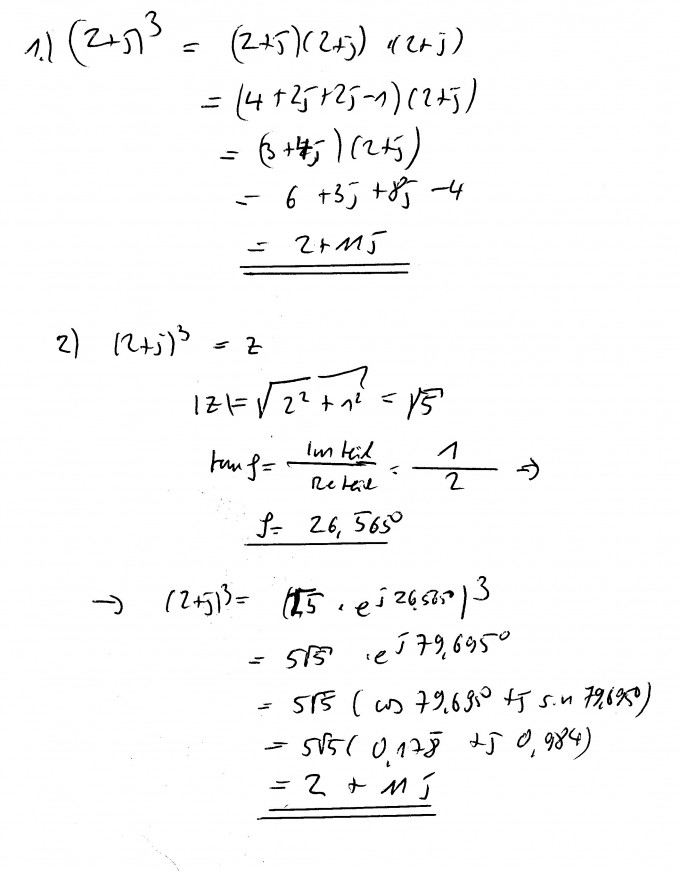 1.) (2+j)³ = (2+j)(2+j) · (2+j)
= (4+2j+2j-1)(2+j)
= (3+4j)(2+j)
= 6 +3j +8j -4
= 2+11j
2) (2+j)³ = z
|z| = √(2² + 1²) = √5
tan φ = Im teil / Re teil = 1 / 2 ⇒
φ = 26,565°
→ (2+j)³ = (√5 · e^(j 26,565°))³
= 5√5 · e^(j 79,695°)
= 5√5 (cos 79,695° + j sin 79,695°)
= 5√5 (0,178 + j 0,984)
= 2 + 11j